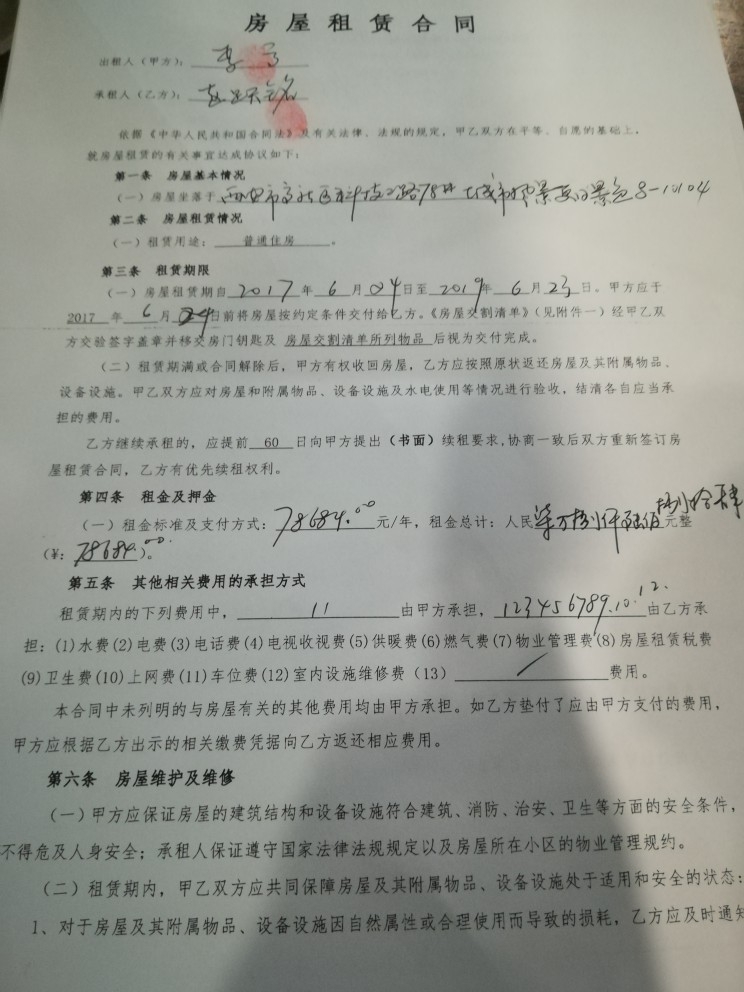 房屋租赁合同
出租人（甲方）：李
承租人（乙方）：
依据《中华人民共和国合同法》及有关法律、法规的规定，甲乙双方在平等、自愿的基础上，
就房屋租赁的有关事宜达成协议如下：
第一条 房屋基本情况
（一）房屋坐落于西安市高新区科技二路78号 城市风景 景 8-10104
第二条 房屋租赁情况
（一）租赁用途： 普通住房 。
第三条 租赁期限
（一）房屋租赁期自 2017 年 6 月 24 日至 2019 年 6 月 23 日。甲方应于
2017 年 6 月 24 日前将房屋按约定条件交付给乙方。《房屋交割清单》（见附件一）经甲乙双
方交验签字盖章并移交房门钥匙及 房屋交割清单所列物品 后视为交付完成。
（二）租赁期满或合同解除后，甲方有权收回房屋，乙方应按照原状返还房屋及其附属物品、
设备设施。甲乙双方应对房屋和附属物品、设备设施及水电使用等情况进行验收，结清各自应当承
担的费用。
乙方继续承租的，应提前 60 日向甲方提出（书面）续租要求,协商一致后双方重新签订房
屋租赁合同，乙方有优先续租权利。
第四条 租金及押金
（一）租金标准及支付方式：78684.00元/年，租金总计：人民 柒万捌仟陆佰捌拾肆元整
（¥：78684.00）。
第五条 其他相关费用的承担方式
租赁期内的下列费用中， 11 由甲方承担，123456789.10.12.由乙方承
担：(1)水费(2)电费(3)电话费(4)电视收视费(5)供暖费(6)燃气费(7)物业管理费(8)房屋租赁税费
(9)卫生费(10)上网费(11)车位费(12)室内设施维修费（13） / 费用。
本合同中未列明的与房屋有关的其他费用均由甲方承担。如乙方垫付了应由甲方支付的费用，
甲方应根据乙方出示的相关缴费凭据向乙方返还相应费用。
第六条 房屋维护及维修
（一）甲方应保证房屋的建筑结构和设备设施符合建筑、消防、治安、卫生等方面的安全条件，
不得危及人身安全；承租人保证遵守国家法律法规规定以及房屋所在小区的物业管理规约。
（二）租赁期内，甲乙双方应共同保障房屋及其附属物品、设备设施处于适用和安全的状态：
1、对于房屋及其附属物品、设备设施因自然属性或合理使用而导致的损耗，乙方应及时通知